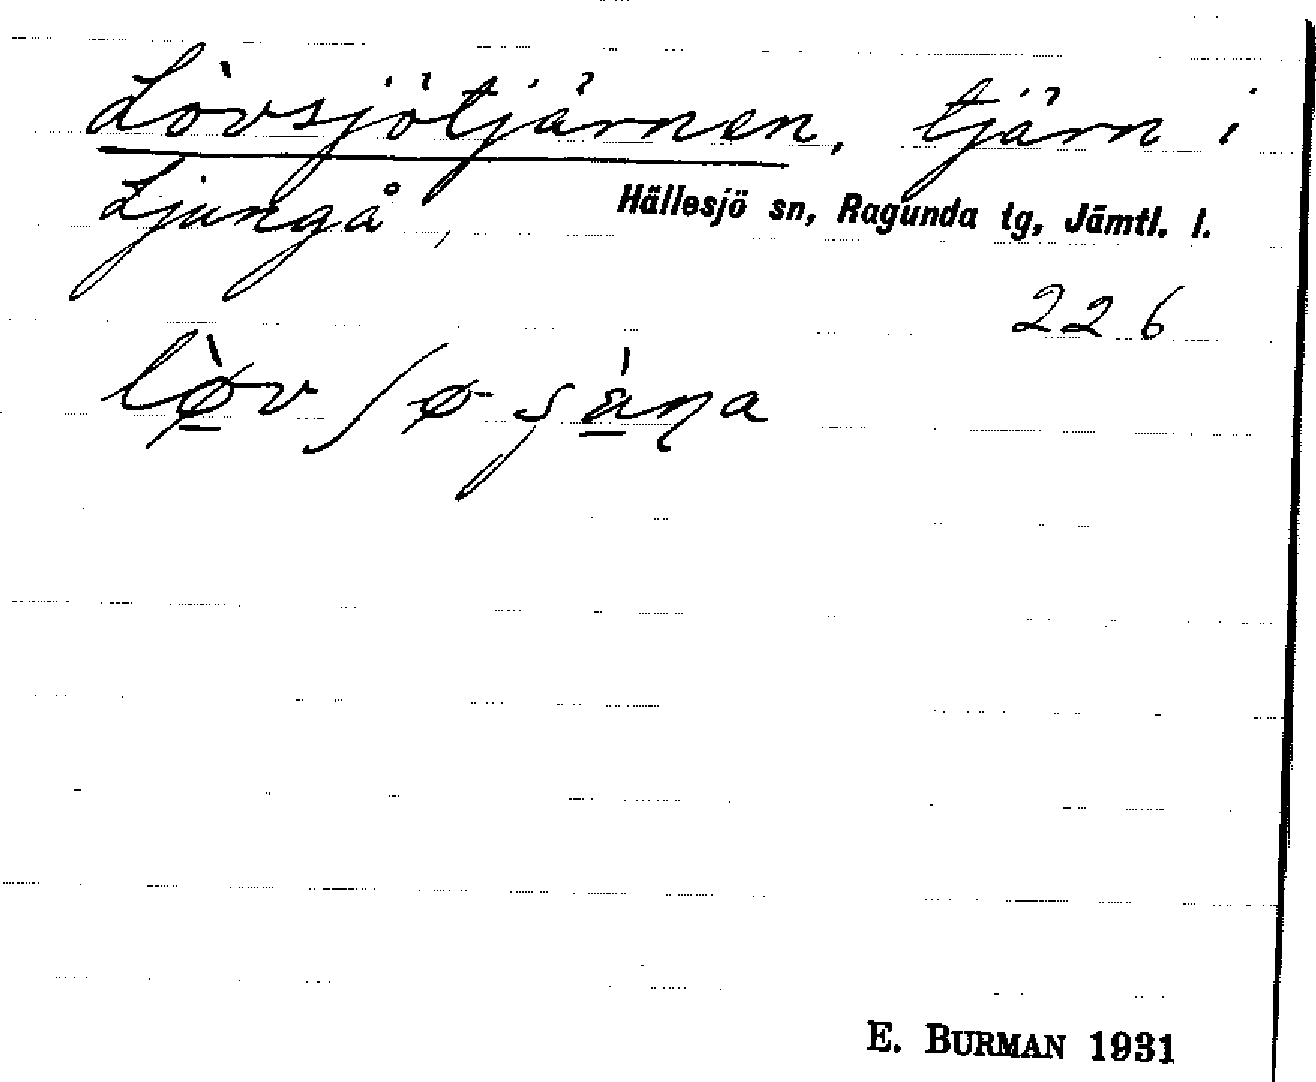 Lövsjötjärnen, tjärn i
Ljungå,
Hällesjö sn, Ragunda tg, Jämtl. l.
226
E. BURMAN 1931